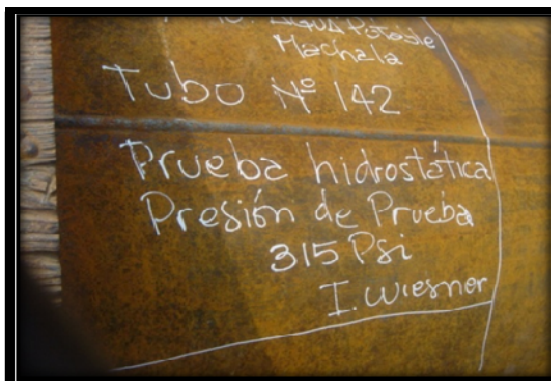 Agua Potable
Machala
Tubo Nº 142
Prueba hidrostática
Presión de Prueba
315 Psi
I. Wiesner